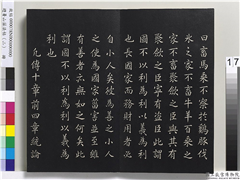 曰畜馬乘不察於雞豚伐
冰之家不畜牛羊百乘之
家不畜聚斂之臣與其有
聚斂之臣寧有盜臣此謂
國不以利為利以義為利
也長國家而務財用者必
自小人矣彼為善之小人
之使為國家菑害並至雖
有善者亦無如之何矣此
謂國不以利為利以義為
利也
凡傳十章前四章統論
17